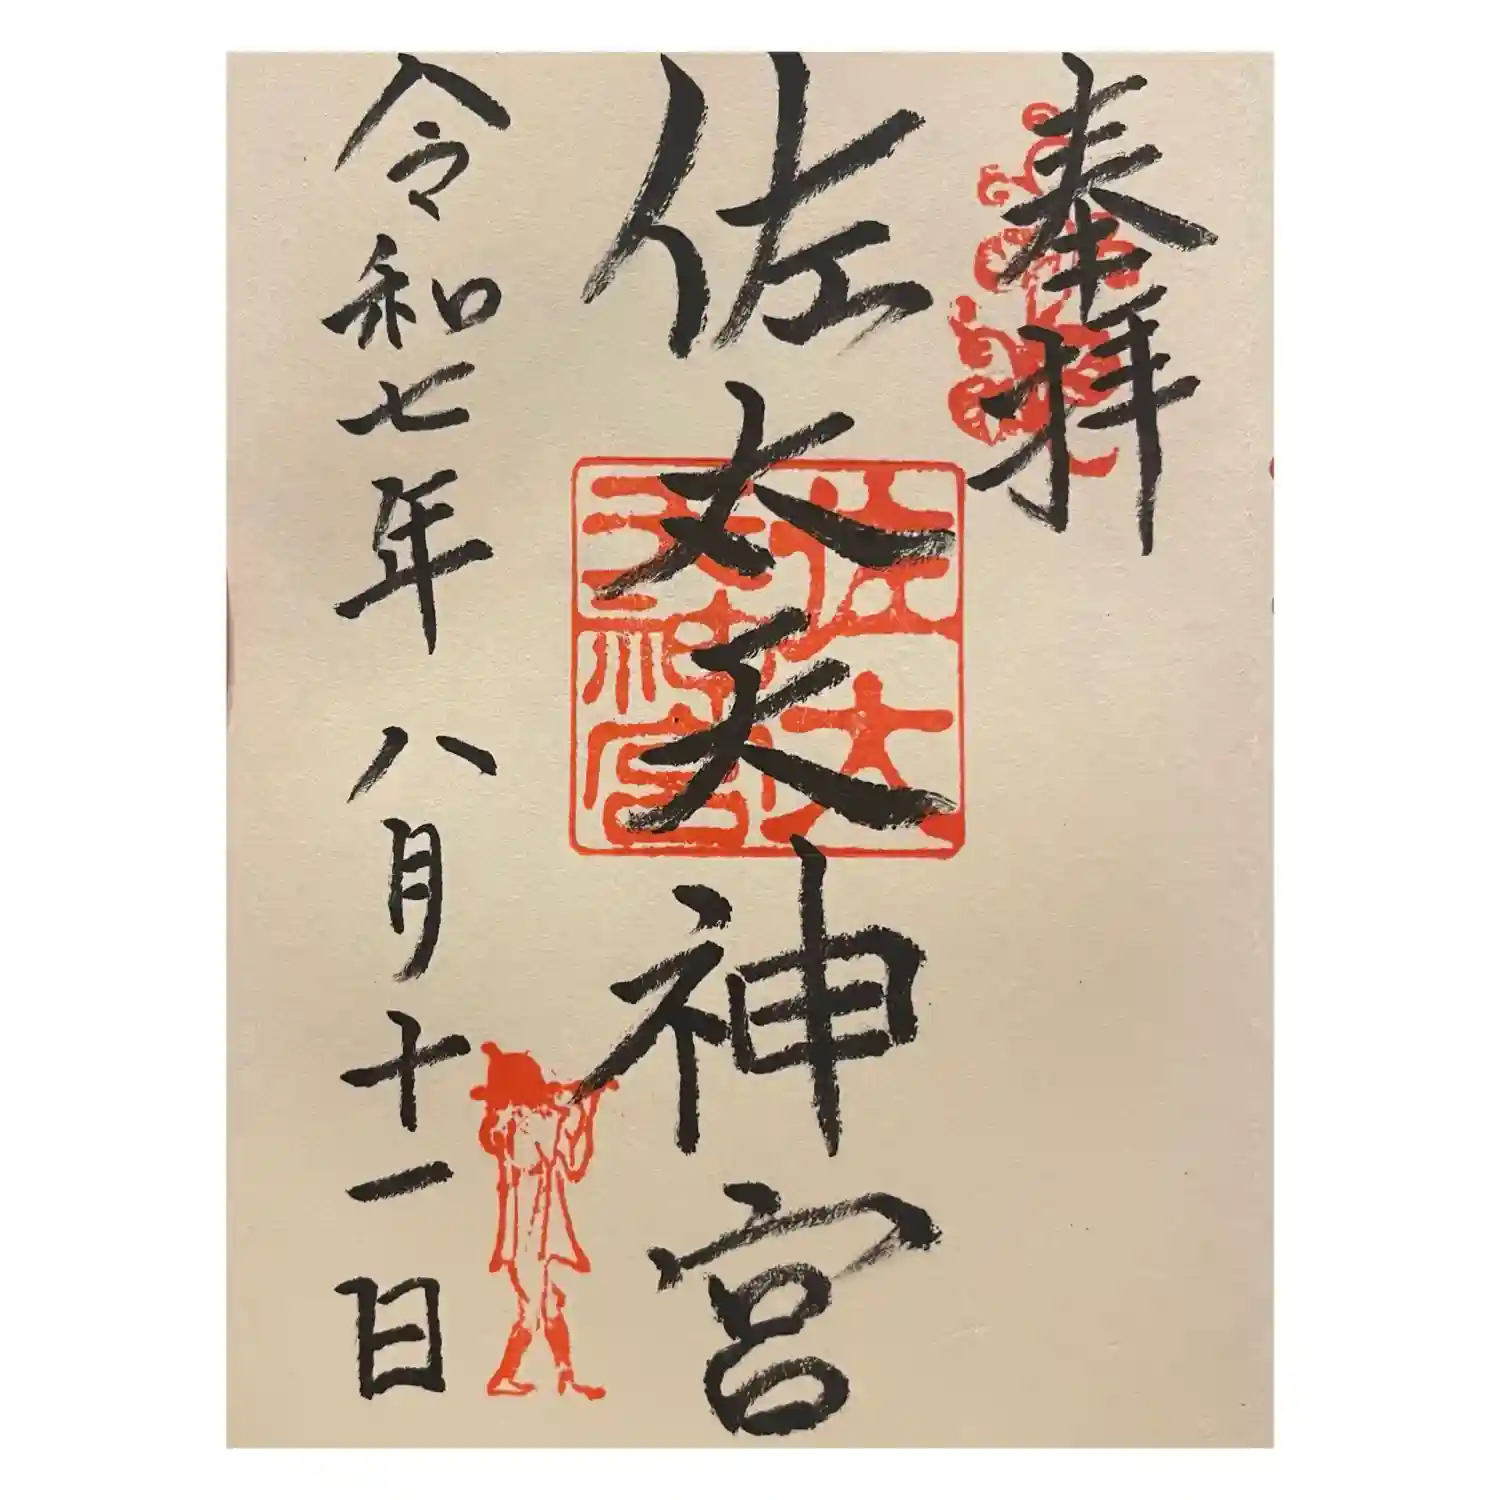 奉拝
佐太天神宮
佐太天神宮
令和七年 八月十一日